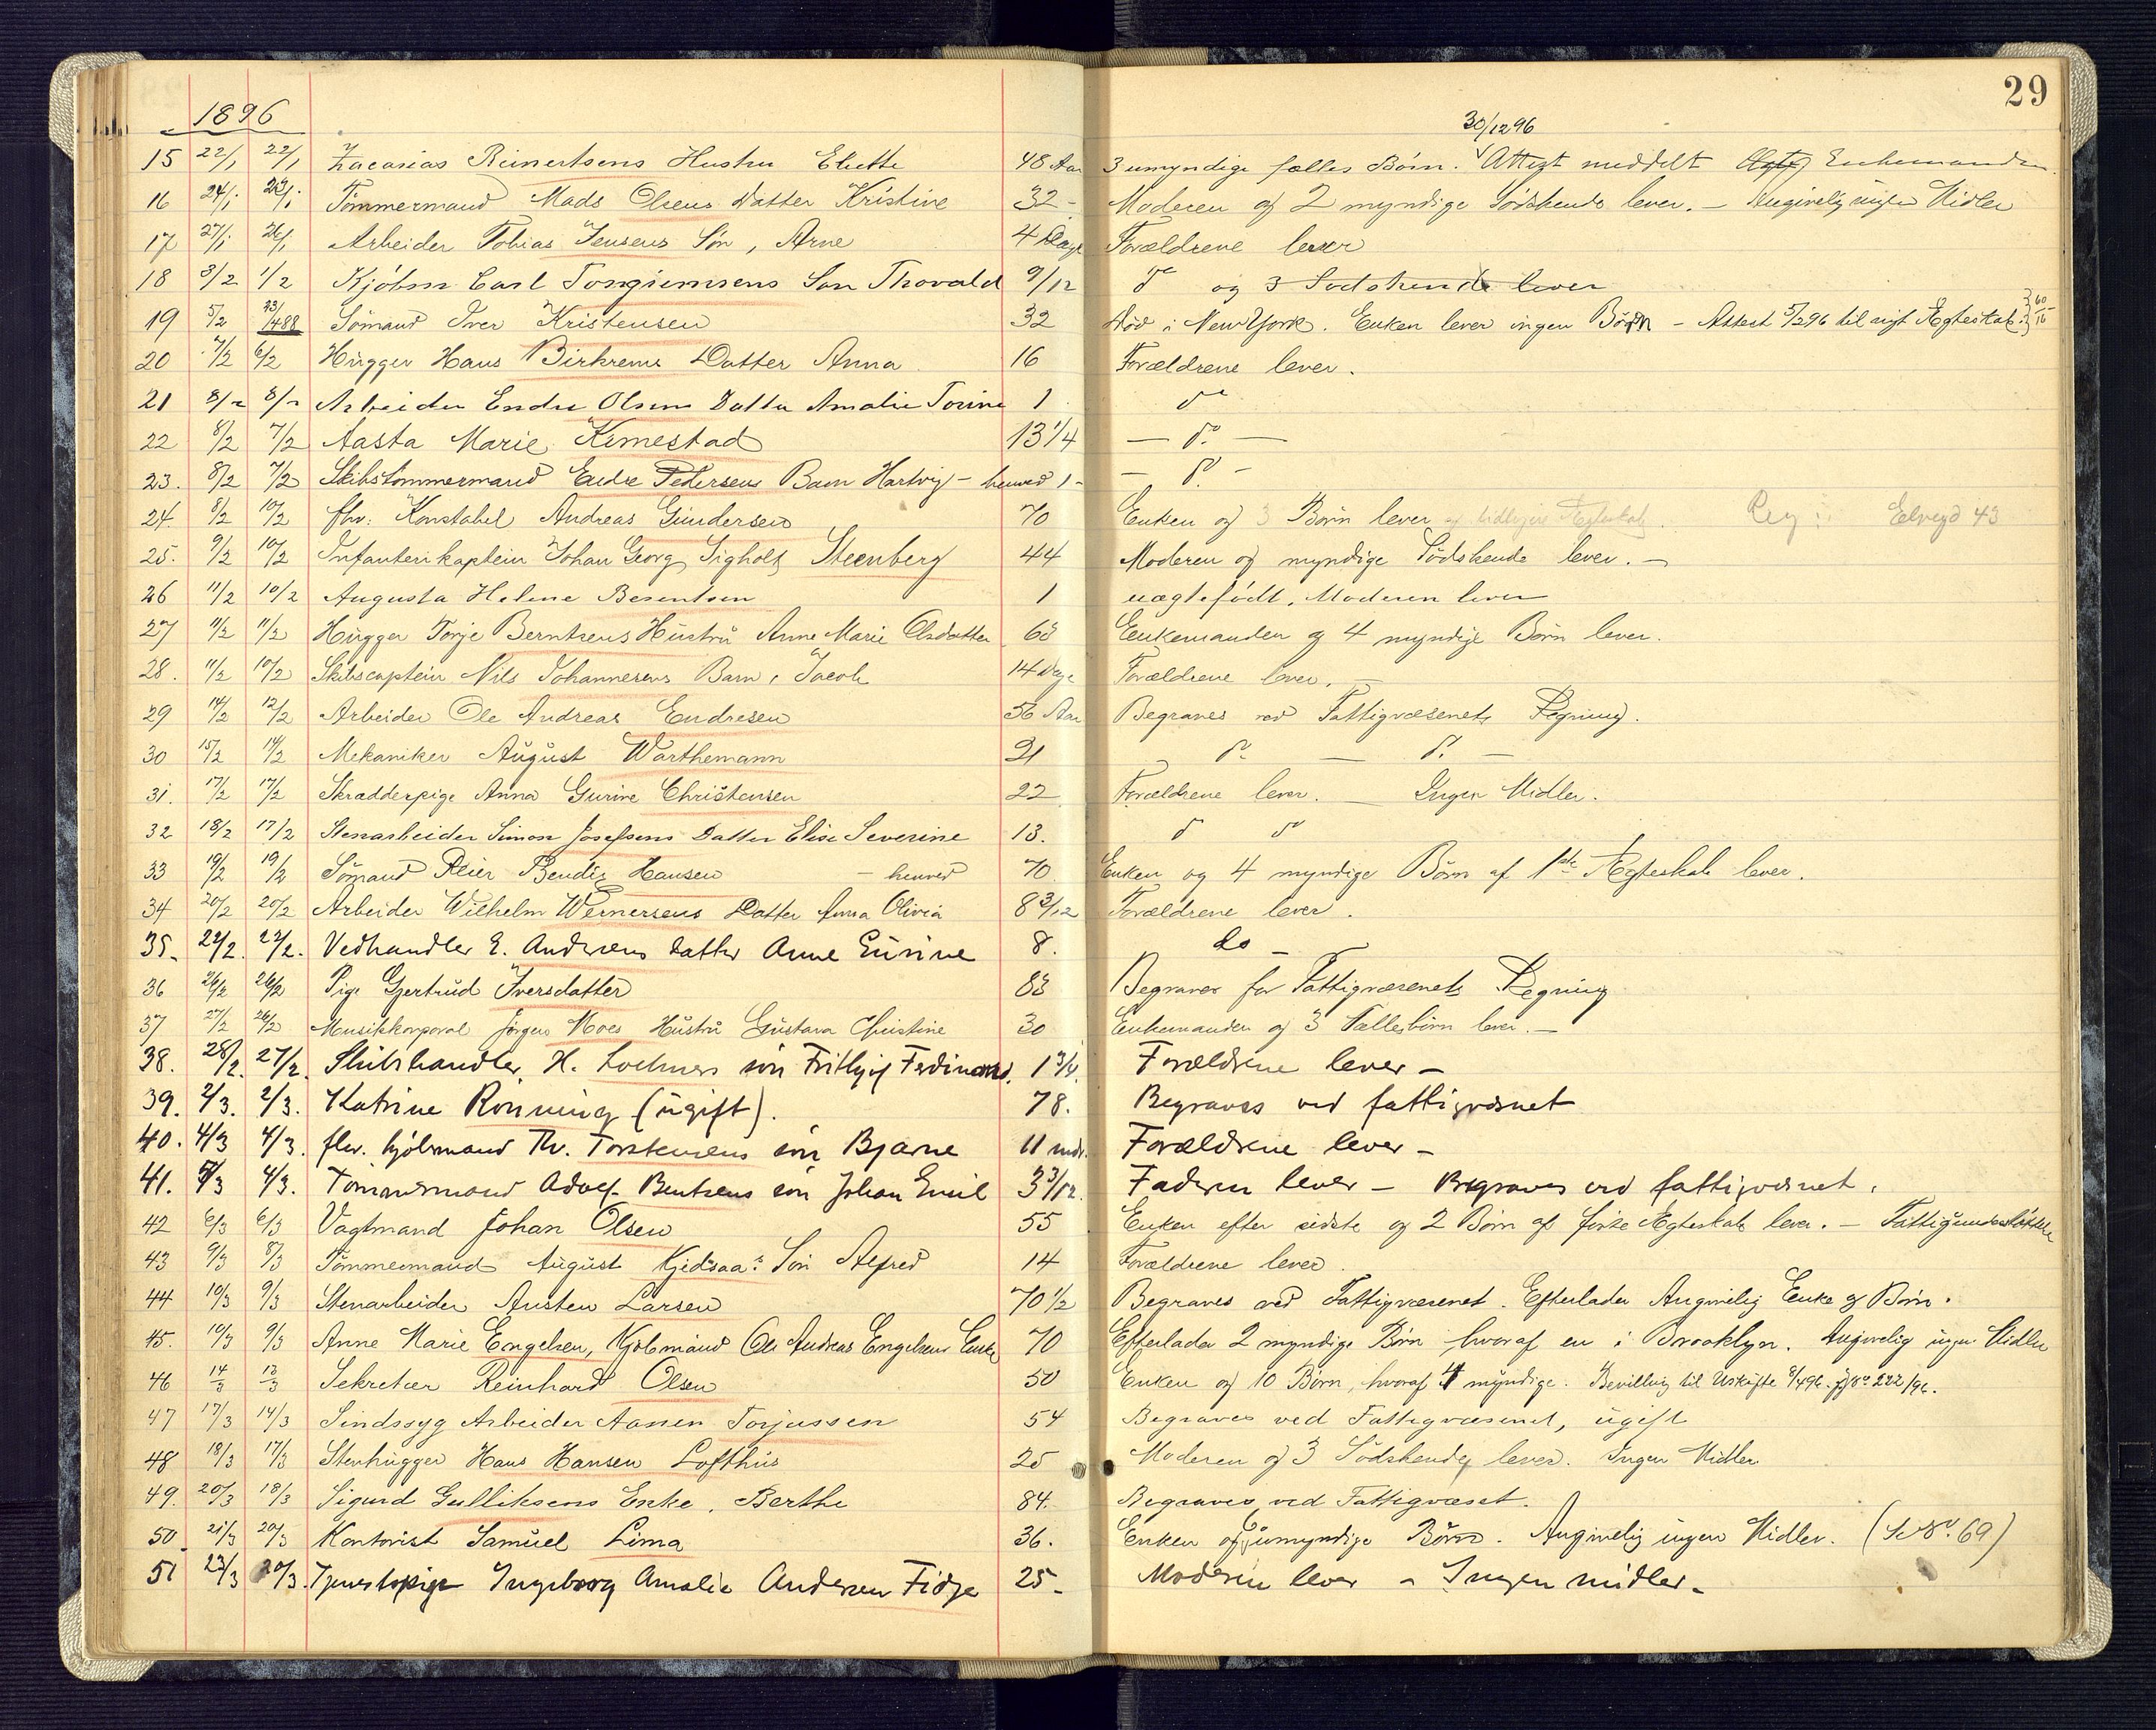 29
1896
30/12 96
15 22/1 22/1 Zacarias Reinertsens Hustru Elicthe 48 Aar 3 umyndige fælles Börn. Attest meddelt Enkemanden
16 24/1 Tömmermand Mads Olsens Datter Kristine 32 - Moderen og 2 myndige Södskende lever. - Angivelig ingen Midler
17 27/1 26/1 Arbeider Tobias Jensens Sön, Arne 4 Dage Forældrene lever
18 3/2 1/2 Carl Sön Thorvald 9/12 do og 3 Södskende lever
19 5/2 23/4 88 Sömand Iver Kristensen 32 Död i New York. Enken lever ingen Börn - Attest 5/2 96 til nyt Ægteskab
20 7/2 6/2 Hugger Hans Birkrems Datter Anna 16 Forældrene lever.
21 8/2 8/2 Arbeider Endre Olsens Datter Amalie Torine 1 do
22 8/2 7/2 Aasta Marie Kimestad 13 1/4 - do -
23. 8/2 7/2 Skibstömmermand Endre Pedersens Barn Hartvig - henved 1 - - do -
24. 8/2 10/2 fhv. Konstabel Andreas Gundersen 70 Enken og 3 Börn lever af tidligere Ægteskab. Elvegd 43
25. 9/2 10/2 Infanterikaptein Johan Georg Sigholt Steenberg 44 Moderen og myndige Södskende lever. -
26 11/2 10/2 Augusta Helene Berentsen 1 uægtefödt. Moderen lever
27 11/2 11/2 Hugger Torje Berntsens Hustru Anne Marie Olsdatter 68 Enkemanden og 4 myndige Börn lever.
28. 11/2 10/2 Skibscaptein Nils Johannesens Barn, Jacob 14 Dage Forældrene lever. -
29 14/2 12/2 Arbeider Ole Andreas Endresen 56 Aar Begraves ved Fattigvæsenets Regning.
30 15/2 14/2 Mekaniker August Warthemann 21 - do - do -
31. 17/2 17/2 Skrædderpige Anna Gurine Christensen 22 Forældrene lever. - Ingen Midler.
32 18/2 17/2 Stenarbeider Simon Josefsens Datter Elise Severine 13. do do
33 19/2 19/2 Sömand Reier Bendix Hansen - henved 70. Enken og 4 myndige Börn af 1ste Ægteskab lever.
34 20/2 20/2 Arbeider Wilhelm Wernersens Datter Anna Olivia 8 3/12 Forældrene lever.
35. 22/2. 22/2. Vedhandler E. Andersens datter Anne Gurine 8. do -
36 26/2 26/2 Pige Gjertrud Iversdatter 83 Begraves for Fattigvæsenets Regning
37 27/2 26/2 Musikkorporal Jörgen Moes Hustru Gustava Christine 30 Enkemanden og 3 Fællesbörn lever. -
38. 28/2. 27/2. Skibshandler H. Lochners sön Frithjof Ferdinand. 1 3/4. Forældrene lever -
39. 2/3. 2/3. Katrine Rönning (ugift). 78. Begraves ved fattigvæsnet
40. 4/3 4/3. fhv. hjólmand Th. Torstensens sön Bjarne 11 mdr. Forældrene lever -
41. 5/3 4/3. Tömmermand Adolf Bentsens sön Johan Emil 3 3/12. Faderen lever - Begraves ved fattigvæsnet.
42 6/3 6/3 Vagtmand Johan Olsen 55 Enken efter sidste og 2 Börn af förste Ægteskab lever. - Fattigunderstöttet
43 9/3 8/3 Tömmermand August Kjedsaas Sön Alfred 14 Forældrene lever.
44 10/3 9/3 Stenarbeider Austen Larsen 70 1/2 Begraves ved Fattigvæsenet. Efterlader Angivelig Enke og Börn.
45. 10/3 9/3 Anne Marie Engelsen, Kjólsmand Ole Andreas Engelsens Enke 70 Efterlader 2 myndige Börn hvoraf en i Brooklyn. Angivelig ingen Midler
46 14/3 13/3 Sekretær Reinhard Olsen 50 Enken og 10 Börn, hvoraf 4 myndige. Bevilling til Uskifte 8/4 96. 222/96.
47 17/3 14/3 Sindssyg Arbeider Aanen Torjussen 54 Begraves ved Fattigvæsenet, ugift
48 18/3 17/3 Stenhugger Hans Hansen Lofthus 25 Moderen og 3 Södskende lever. Ingen Midler
49. 20/3 18/3 Sigurd Gulliksens Enke, Berthe 84. Begraves ved Fattigvæset.
50. 21/3 20/3 Kontorist Samuel Lima 36. Enken og 6 umyndige Börn. Angivelig ingen Midler. (Se No. 69)
51 23/3 20/3. Tjenestepige Ingeborg Amalie Andersen Fidje 25 - Moderen lever - Ingen midler -